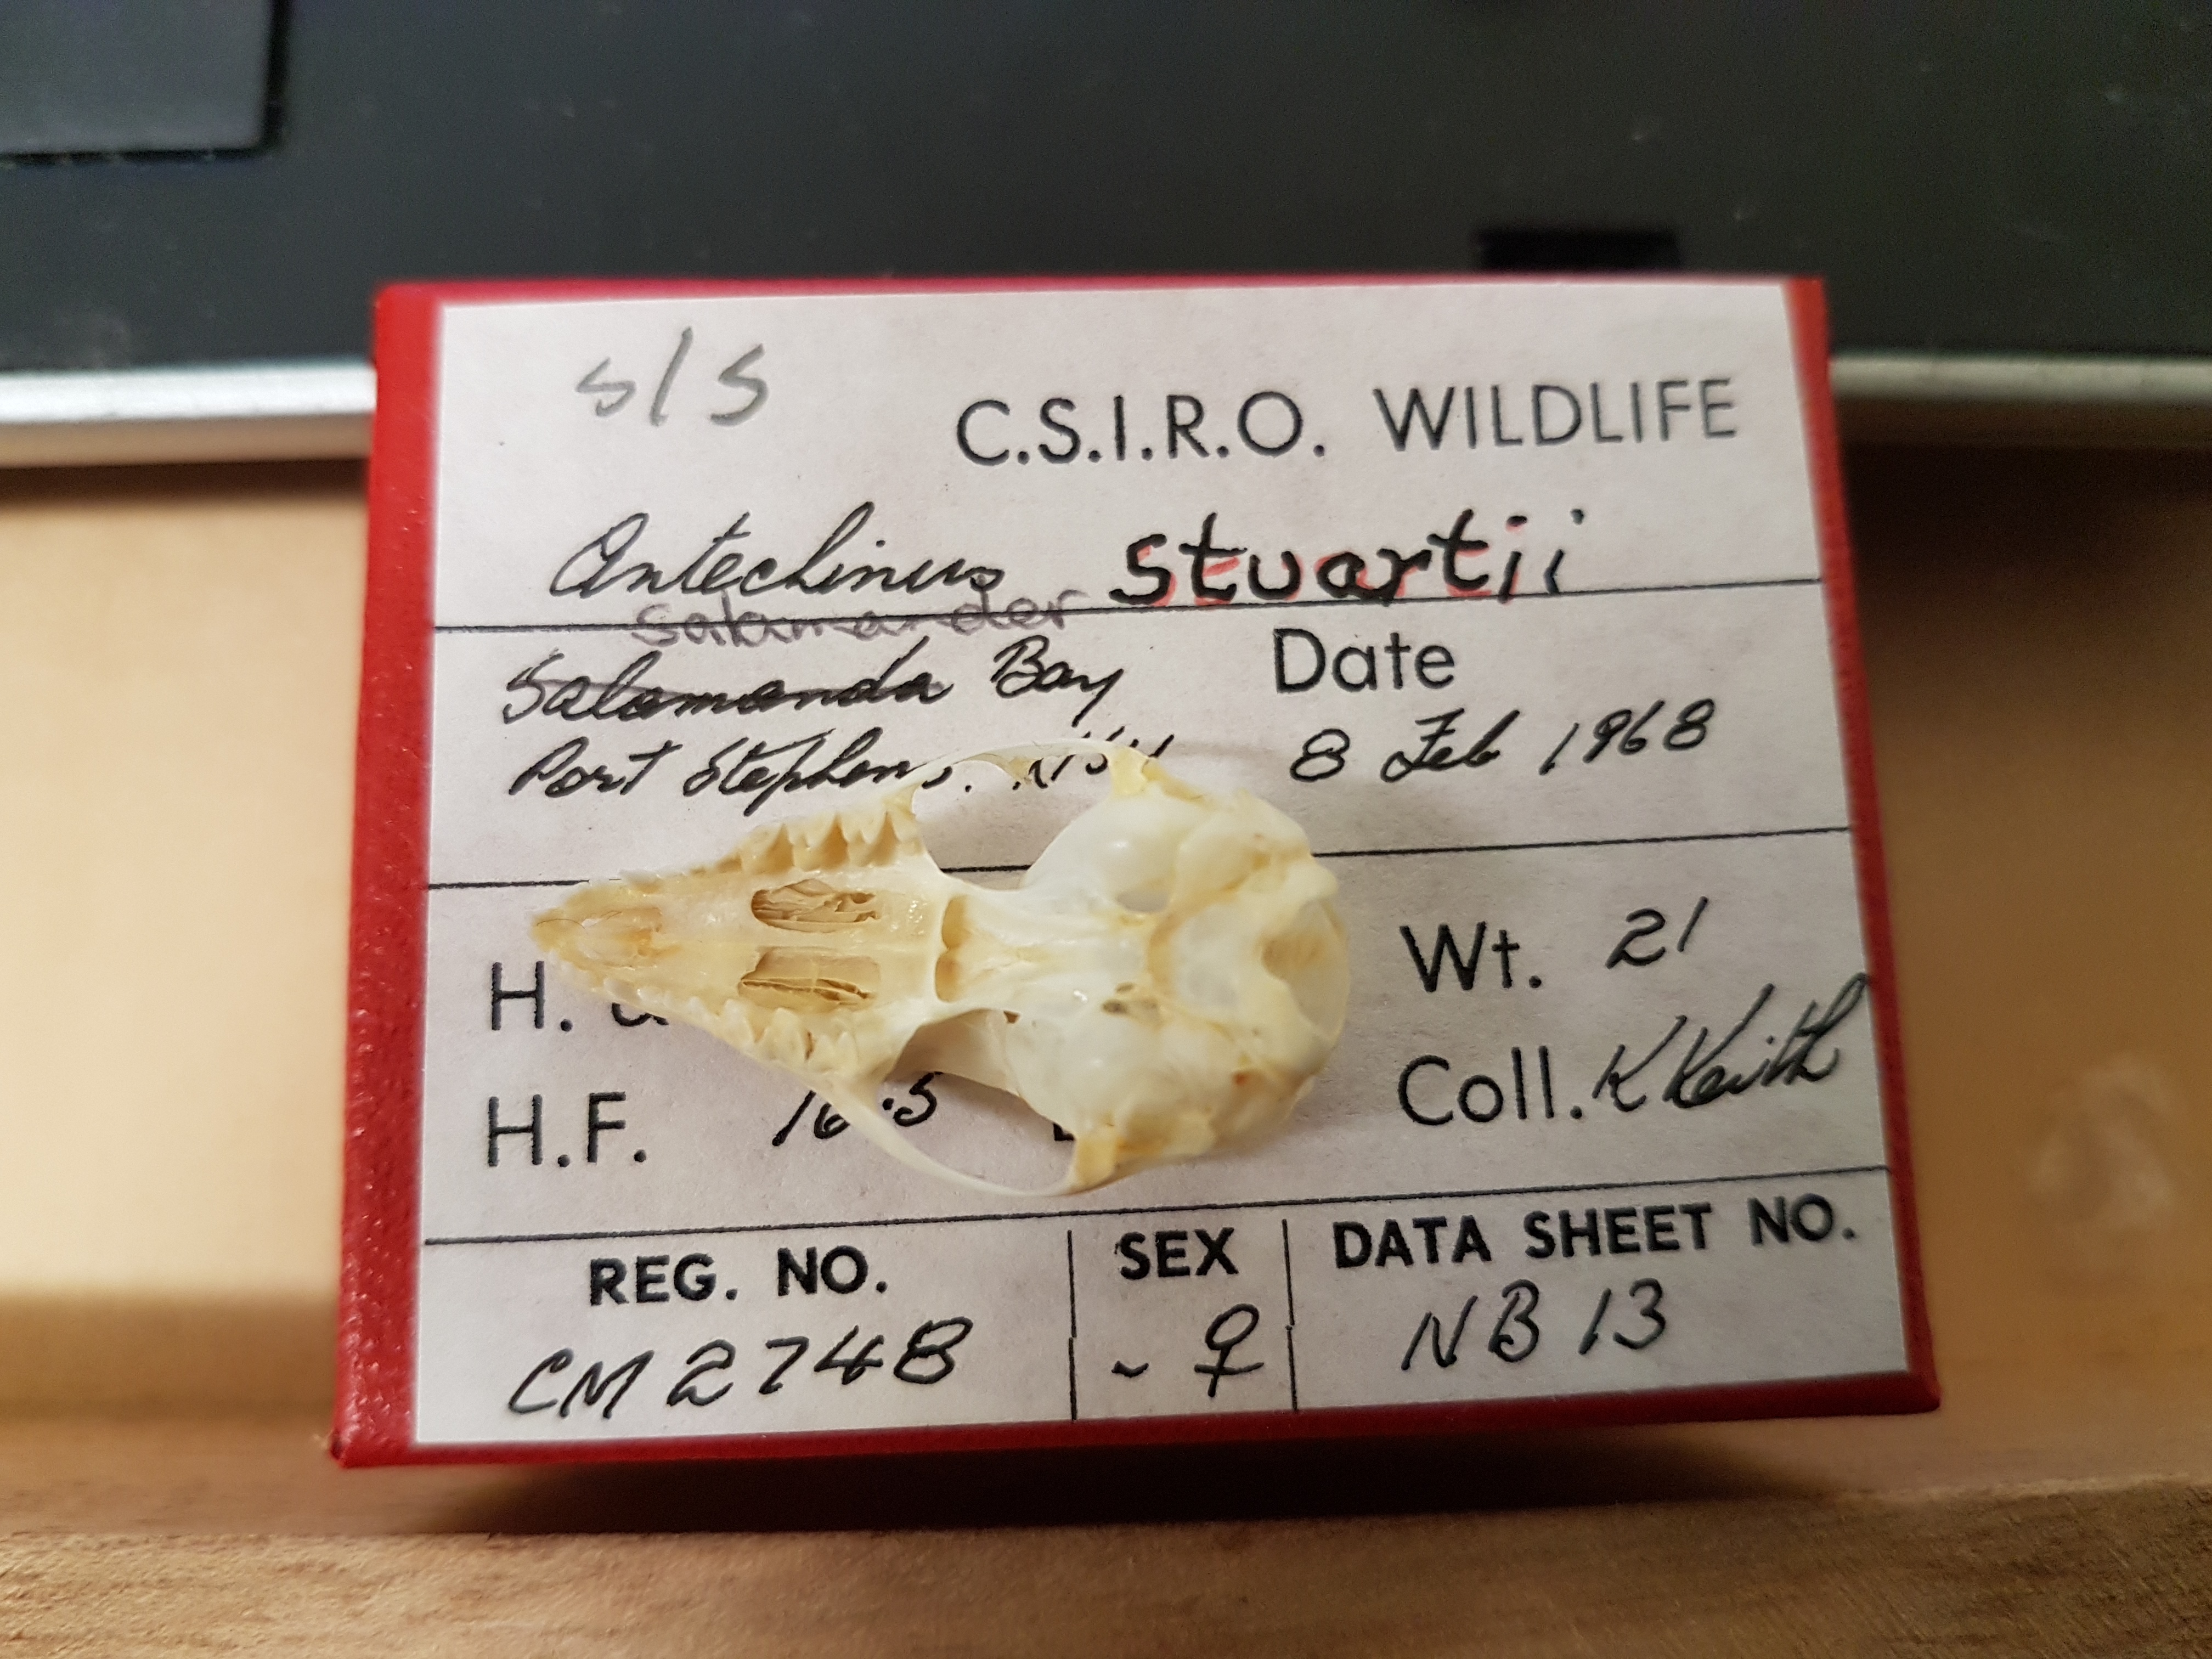 s/s
C.S.I.R.O. WILDLIFE
Antechinus stuartii
Salamander
Salamanda Bay
Date
Port Stephens.
8 Feb 1968
H.
Wt. 21
H.F. 16.5
Coll. K Keith
REG. NO. SEX DATA SHEET NO.
CM 2748 ~ ♀ NB 13